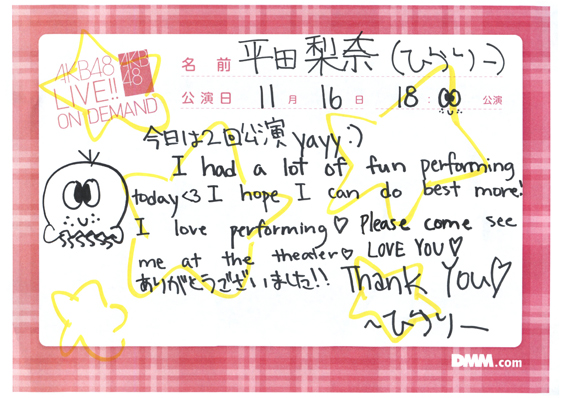 AKB48
LIVE!!
ON DEMAND
AKB
48
名前 平田梨奈(ひらりー)
公演日 11月16日 18:00公演
今日は2回公演 yayy :)
I had a lot of fun performing
today<3 I hope I can do best more!
I love performing♡ Please come see
me at the theater♡ LOVE YOU♡
ありがとうございました!! Thank You♡
~ひらりー
DMM.com